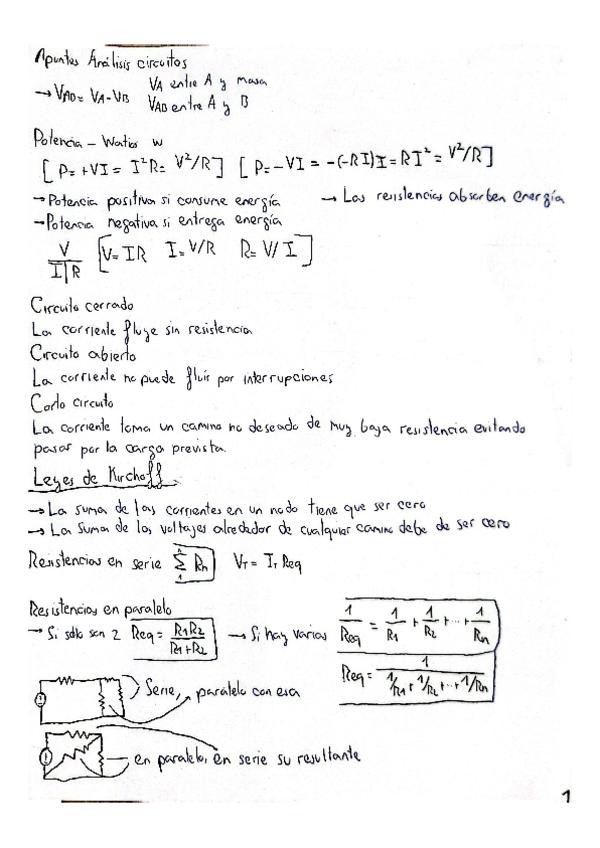 Apuntes Análisis circuitos
→ VAB = VA - VB   VA entre A y masa
VAB entre A y B
Potencia - Watios w
[P = +VI = I²R = V²/R] [P = -VI = -(-RI)I = RI² = V²/R]
→ Potencia positiva si consume energía → Las resistencias absorben energía
→ Potencia negativa si entrega energía
V
I | R [V = IR   I = V/R   R = V/I]
Circuito cerrado
La corriente fluye sin resistencia
Circuito abierto
La corriente no puede fluir por interrupciones
Corto circuito
La corriente toma un camino no deseado de muy baja resistencia evitando
pasar por la carga prevista.
Leyes de Kirchoff
→ La suma de las corrientes en un nodo tiene que ser cero
→ La suma de los voltajes alrededor de cualquier camino debe de ser cero
Resistencias en serie Σ Rn   VT = IT Req
Resistencias en paralelo
→ Si sólo son 2 Req = R1R2/(R1+R2) → Si hay varias 1/Req = 1/R1 + 1/R2 + ... + 1/Rn
Req = 1/(1/R1 + 1/R2 + ... + 1/Rn)
Serie, paralelo con esa
en paralelo, en serie su resultante
1